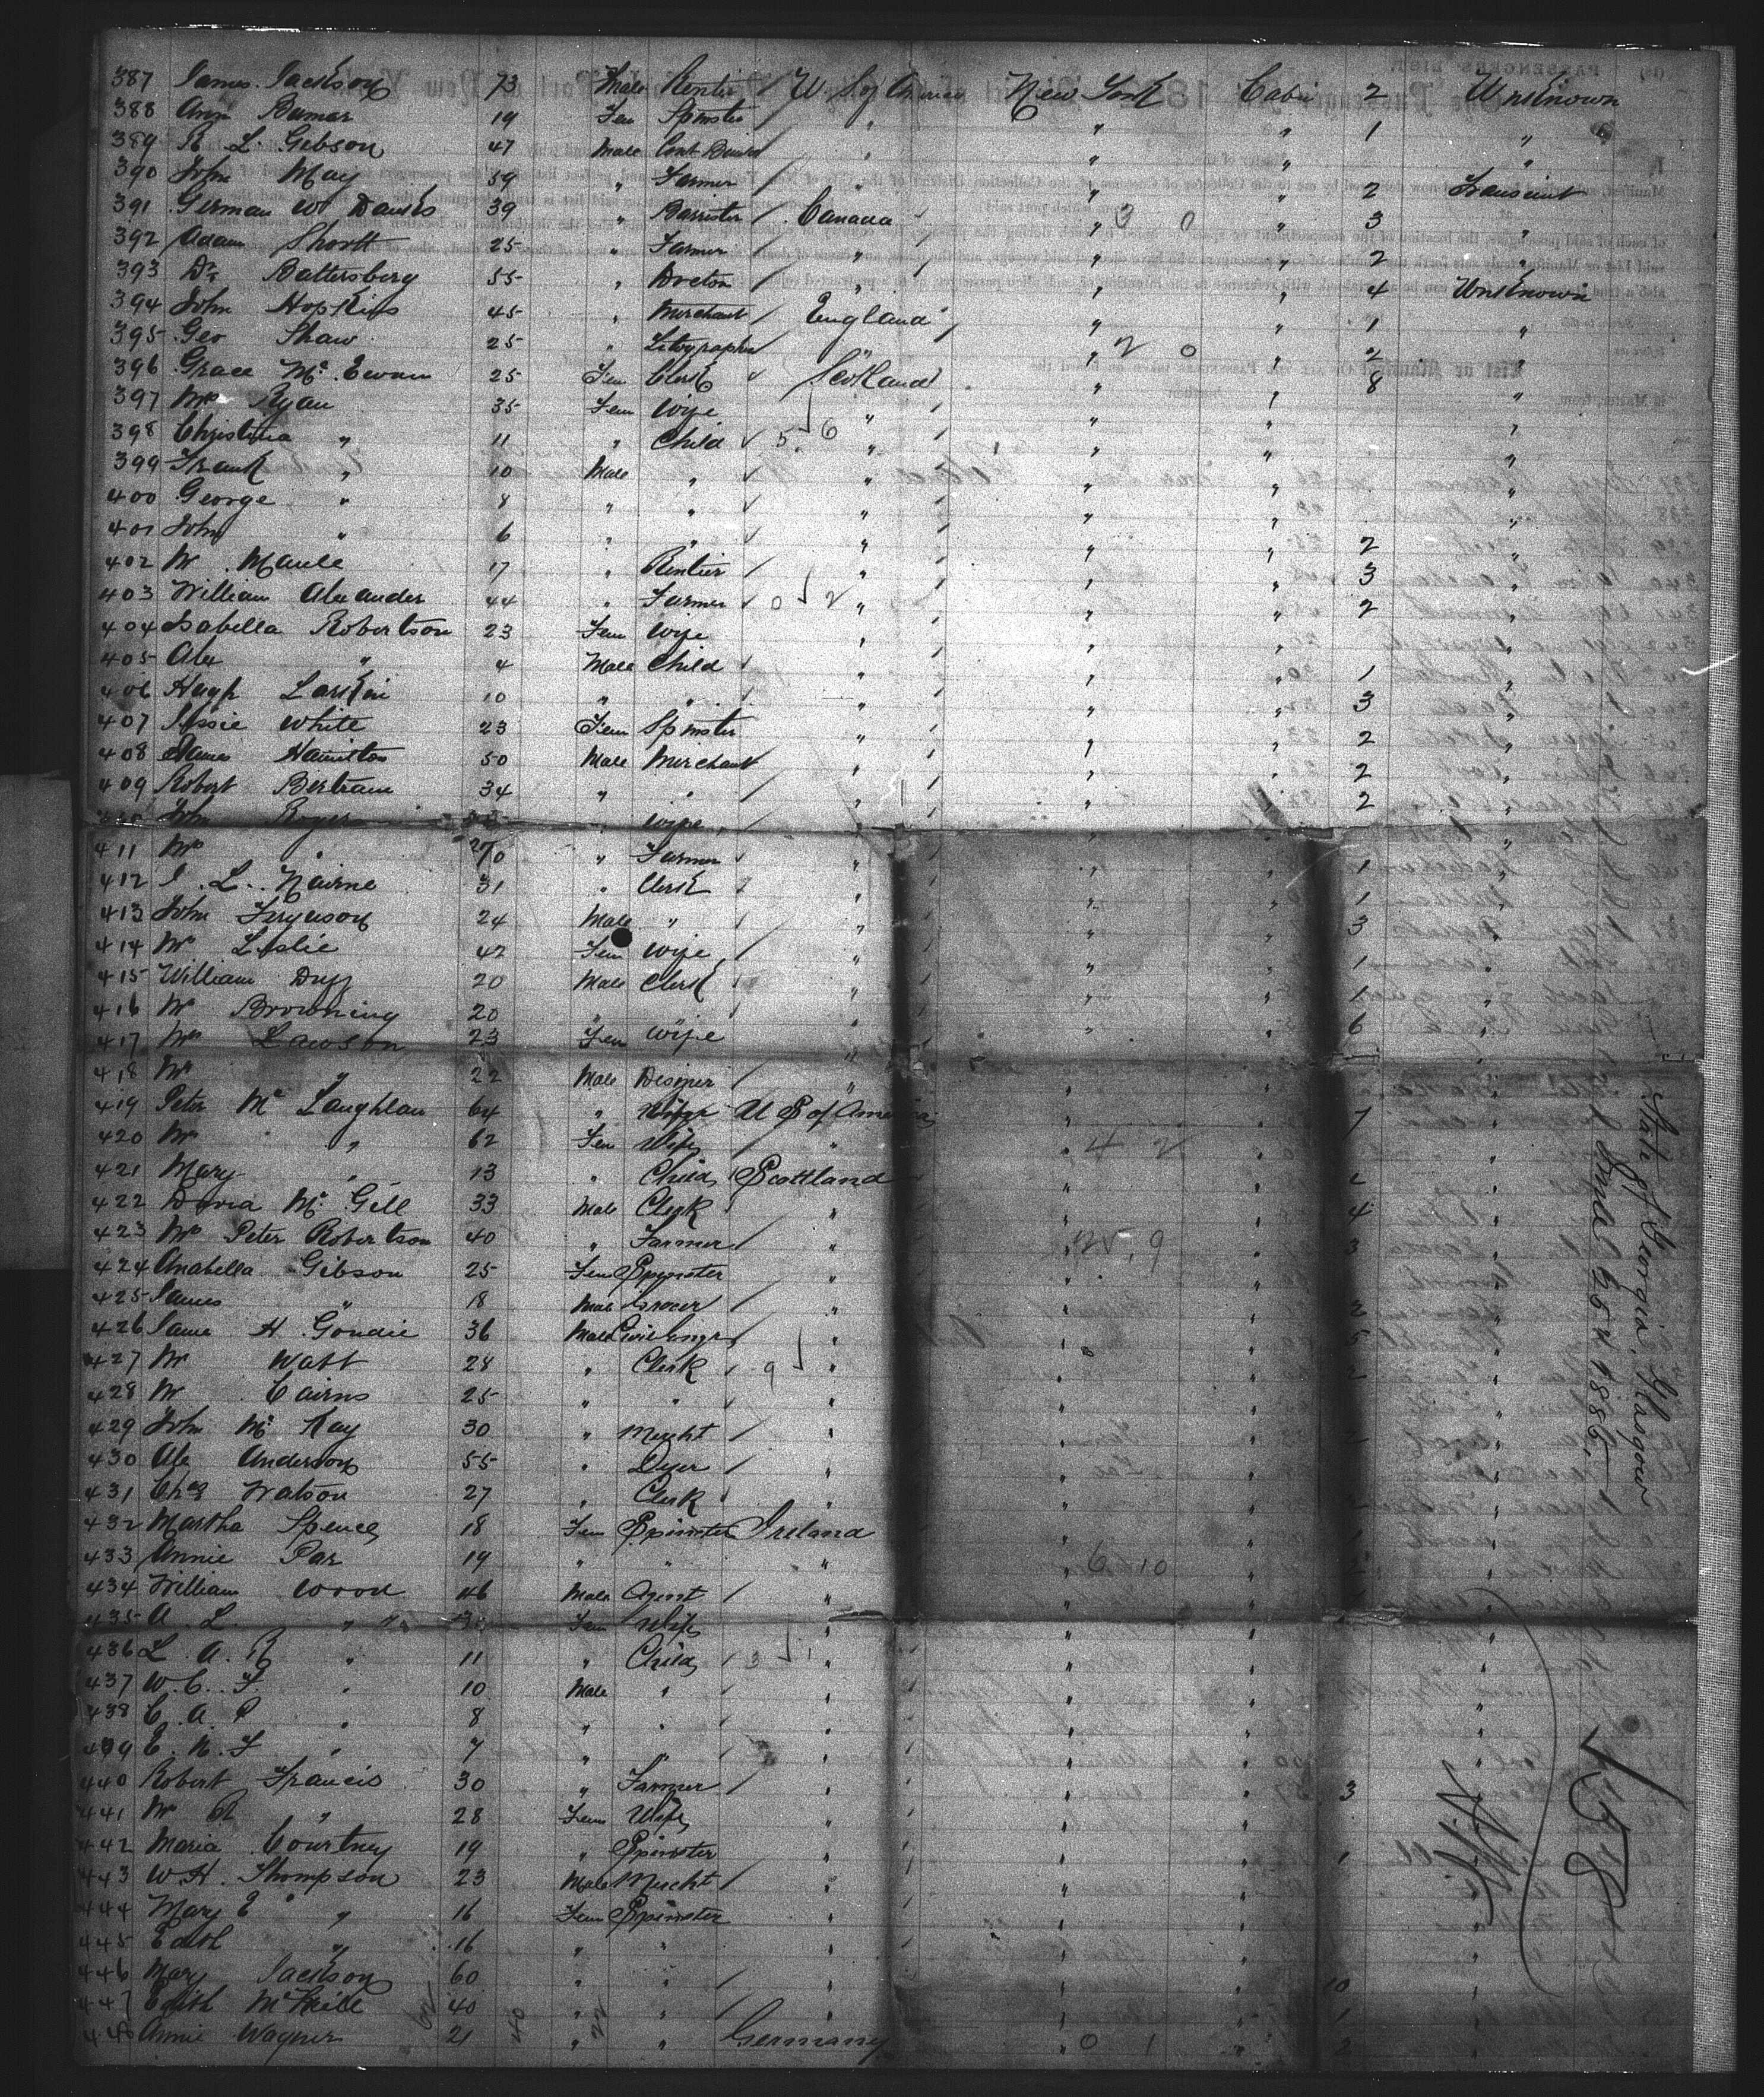 387 James Jackson 73 Male Rentier U. S. of America New York Cabin 2 Unknown
388 Ann Bamar 19 Fem Spinster " " " 1 "
389 R. L. Gibson 47 Male " " " "
390 John May 59 " Farmer " " " 2 Transcient
391 German W. Davies 39 " Barrister Canada " 3 0 " 3 "
392 Adam Shortt 25 " Farmer " " " 2 "
393 Dr. Battersberg 55 " Doctor " " " 4 Unknown
394 John Hopkins 45 " Merchant England " " 1 "
395 Geo Shaw 25 " Litographer " " 2 0 " 2 "
396 Grace Mc. Ewan 25 Fem Clerk Scotland " " 8 "
397 Mrs Ryan 35 Fem Wife " " " "
398 Christina " 11 " Child 5 6 " " " "
399 Frank " 10 Male " " " " "
400 George " 8 " " " " " "
401 John " 6 " " " " " 2 "
402 W. Maule 17 " Rentier " " " 3 "
403 William Alexander 44 " Farmer 0 2 " " " 2 "
404 Isabella Robertson 23 Fem Wife " " " "
405 Alex " 4 Male Child " " " 1 "
406 Hugh Larkin 10 " " " " " 3 "
407 Jessie White 23 Fem Spinster " " " 2 "
408 James Hamilton 50 Male Merchant " " " 2 "
409 Robert Bertram 34 " " " " " 2 "
John Roger " Wife "
411 Mrs " 70 " Farmer " " " 1 "
412 J. L. Nairne 31 " Clerk " " " 1 "
413 John Ferguson 24 Male " " " " 3 "
414 Mrs Leslie 42 Fem Wife " " " 1 "
415 William Duff 20 Male Clerk " " " 1 "
416 Mr Browning 20 " " " " " 6 "
417 Mrs Lawson 23 Fem Wife "
418 Mr " 22 Male Desiner " " " "
419 Peter Mc Laughlan 64 " U S of America " " 7 "
420 Mrs " 62 Fem Wife " " 4 2 " "
421 Mary " 13 " Child Scottland " " 2 "
422 David Mc. Gill 33 Male Clerk " " " 4 "
423 Mr Peter Robertson 40 " Farmer " " 25 9 " 3 "
424 Anabella Gibson 25 Fem Spinster " " " "
425 James " 18 Male Grocer " " " 2 "
426 James H. Goudie 36 Male Civil Engr " " " 5 "
427 Mr Watt 28 " Clerk 9 " " " 2 "
428 Mr Cairns 25 " " " " " "
429 John Mc. Kay 30 " Mercht " " " "
430 Alex Anderson 55 " Dyer " " " "
431 Chas Watson 27 " Clerk " " " "
432 Martha Spence 18 Fem Spinster Ireland " " "
433 Annie Par 19 " " " " 6 10 " "
434 William Wood 46 Male Agent " " " "
435 A. L. " Fem Wife " " " "
436 L. A. R " 11 " Child 3 1 " " " "
437 W. C. F. " 10 Male " " " " "
438 C. A. P " 8 " " " " " "
439 E. N. F " 7 " " " " " "
440 Robert Francis 30 " Farmer " " " 3 "
441 Mrs R " 28 Fem Wife " " "
442 Maria Courtney 19 " Spinster " " " 1
443 W. H. Thompson 23 Male Mercht " " "
444 Mary E " 16 Fem Spinster " " "
445 Edith " 16 " " " " "
446 Mary Jackson 60 " " " " " 10
447 Edith McNeill 40 " " " " " 1
448 Annie Wagner 21 " " Germany " 0 1 " 2
State of Georgia, Glasgow
1886